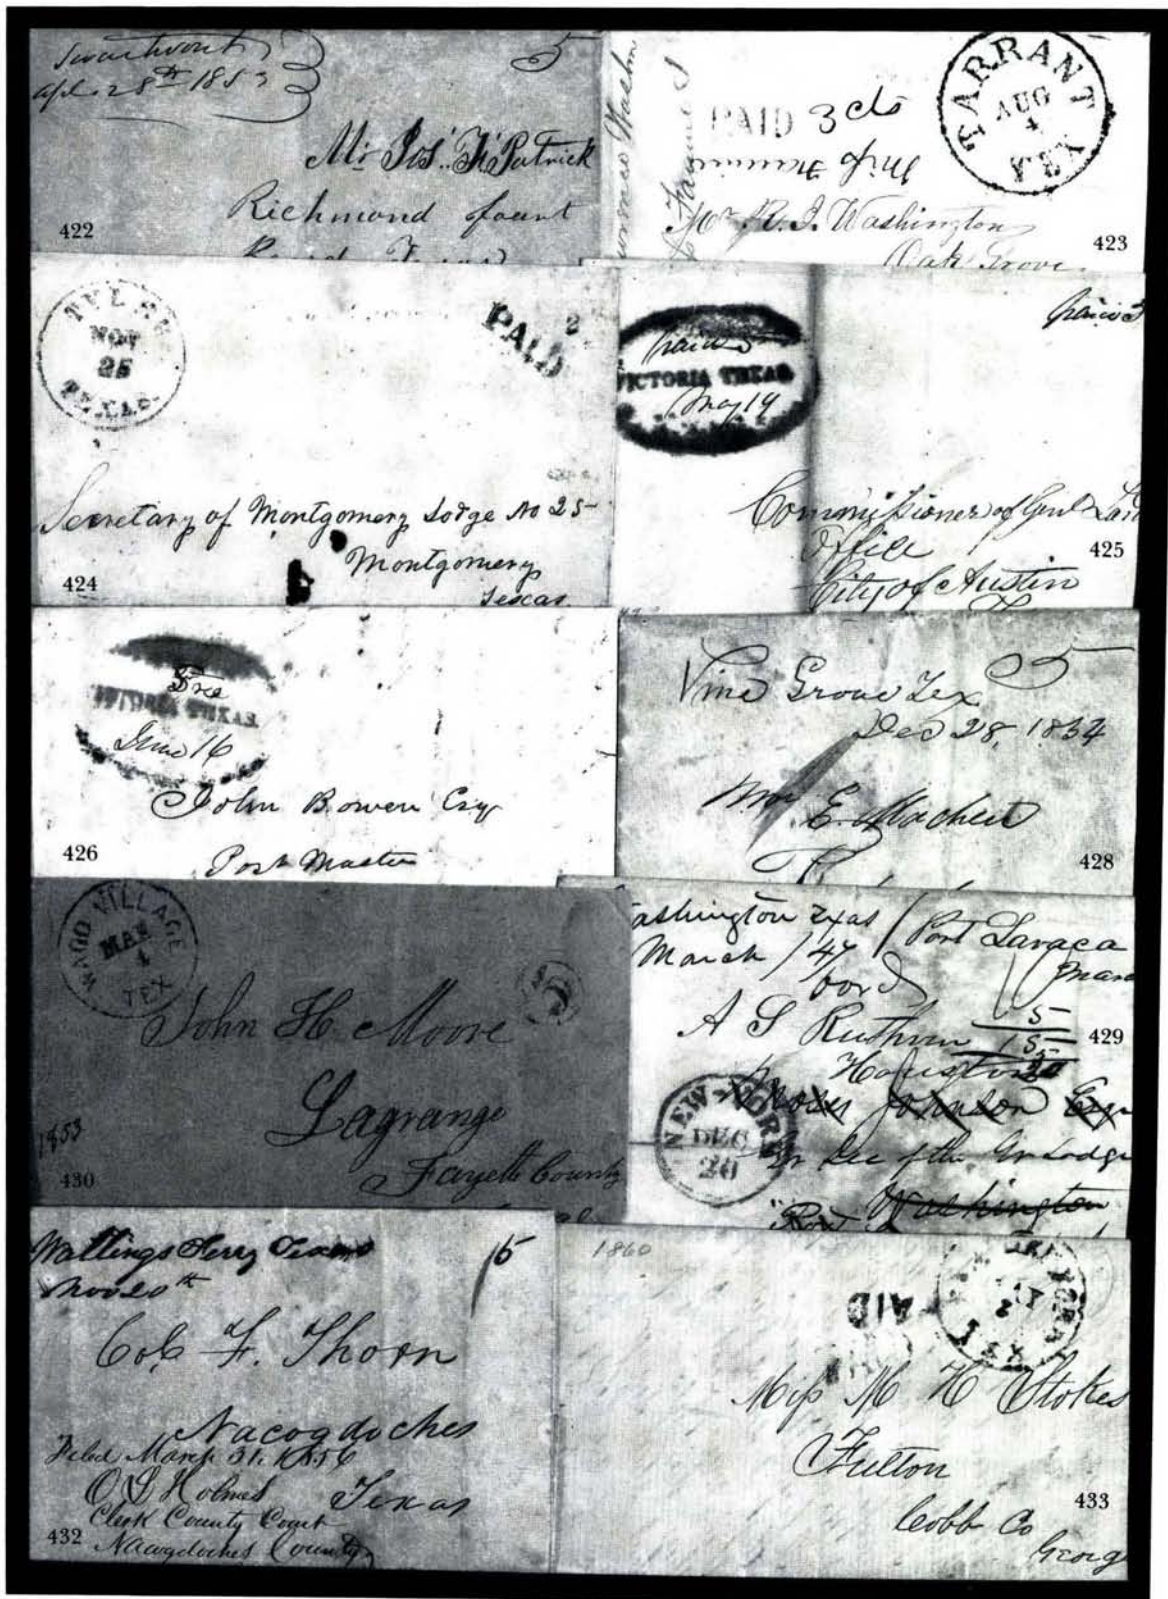 Swartwout
Apl. 28th 1853
5
Mr Jos. Fk Patrick
Richmond
422
TARRANT
AUG
4
TEX
PAID 3 cts
Miss Fannie
Mr R. I. Washington
Oak Grove
423
NOV
25
TEXAS.
PAID
2
Secretary of Montgomery Lodge No 25
Montgomery
Texas
424
paid 5
VICTORIA TEXAS
May 19
Commissioner of Genl Lan
Office
City of Austin
425
Free
VICTORIA TEXAS
June 16
John Bowen Esq
Post Master
426
Vine Grove Tex
5
Dec 28, 1854
E. Machett
428
WACO VILLAGE
MAR
4
TEX
5
John H. Moore
Lagrange
Fayette County
1853
430
ashington Texas
March / 47
Port Lavaca
A S Ruthven
5
15
20
Houston
429
NEW-YORK
DEC
20
Johnson Esq
Sec of the Gr Lodge
Washington
Wallings Ferry Texas
Nov 20th
15
Col F. Thorn
Nacogdoches
Texas
Filed March 31. 1856
O L Holmes
Clerk County Court
Nacogdoches County
432
1860
AID
TEX
Miss M H Stokes
Fulton
Cobb Co
Georg
433